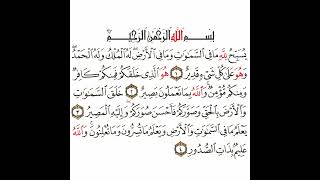 بِسْمِ اللَّهِ الرَّحْمَٰنِ الرَّحِيمِ
يُسَبِّحُ لِلَّهِ مَا فِي السَّمَٰوَٰتِ وَمَا فِي الْأَرْضِ لَهُ الْمُلْكُ وَلَهُ الْحَمْدُ
وَهُوَ عَلَىٰ كُلِّ شَيْءٍ قَدِيرٌ ١ هُوَ الَّذِي خَلَقَكُمْ فَمِنكُمْ كَافِرٌ
وَمِنكُم مُّؤْمِنٌ وَاللَّهُ بِمَا تَعْمَلُونَ بَصِيرٌ ٢ خَلَقَ السَّمَٰوَٰتِ
وَالْأَرْضَ بِالْحَقِّ وَصَوَّرَكُمْ فَأَحْسَنَ صُوَرَكُمْ وَإِلَيْهِ الْمَصِيرُ ٣
يَعْلَمُ مَا فِي السَّمَٰوَٰتِ وَالْأَرْضِ وَيَعْلَمُ مَا تُسِرُّونَ وَمَا تُعْلِنُونَ وَاللَّهُ
عَلِيمٌ بِذَاتِ الصُّدُورِ ٤